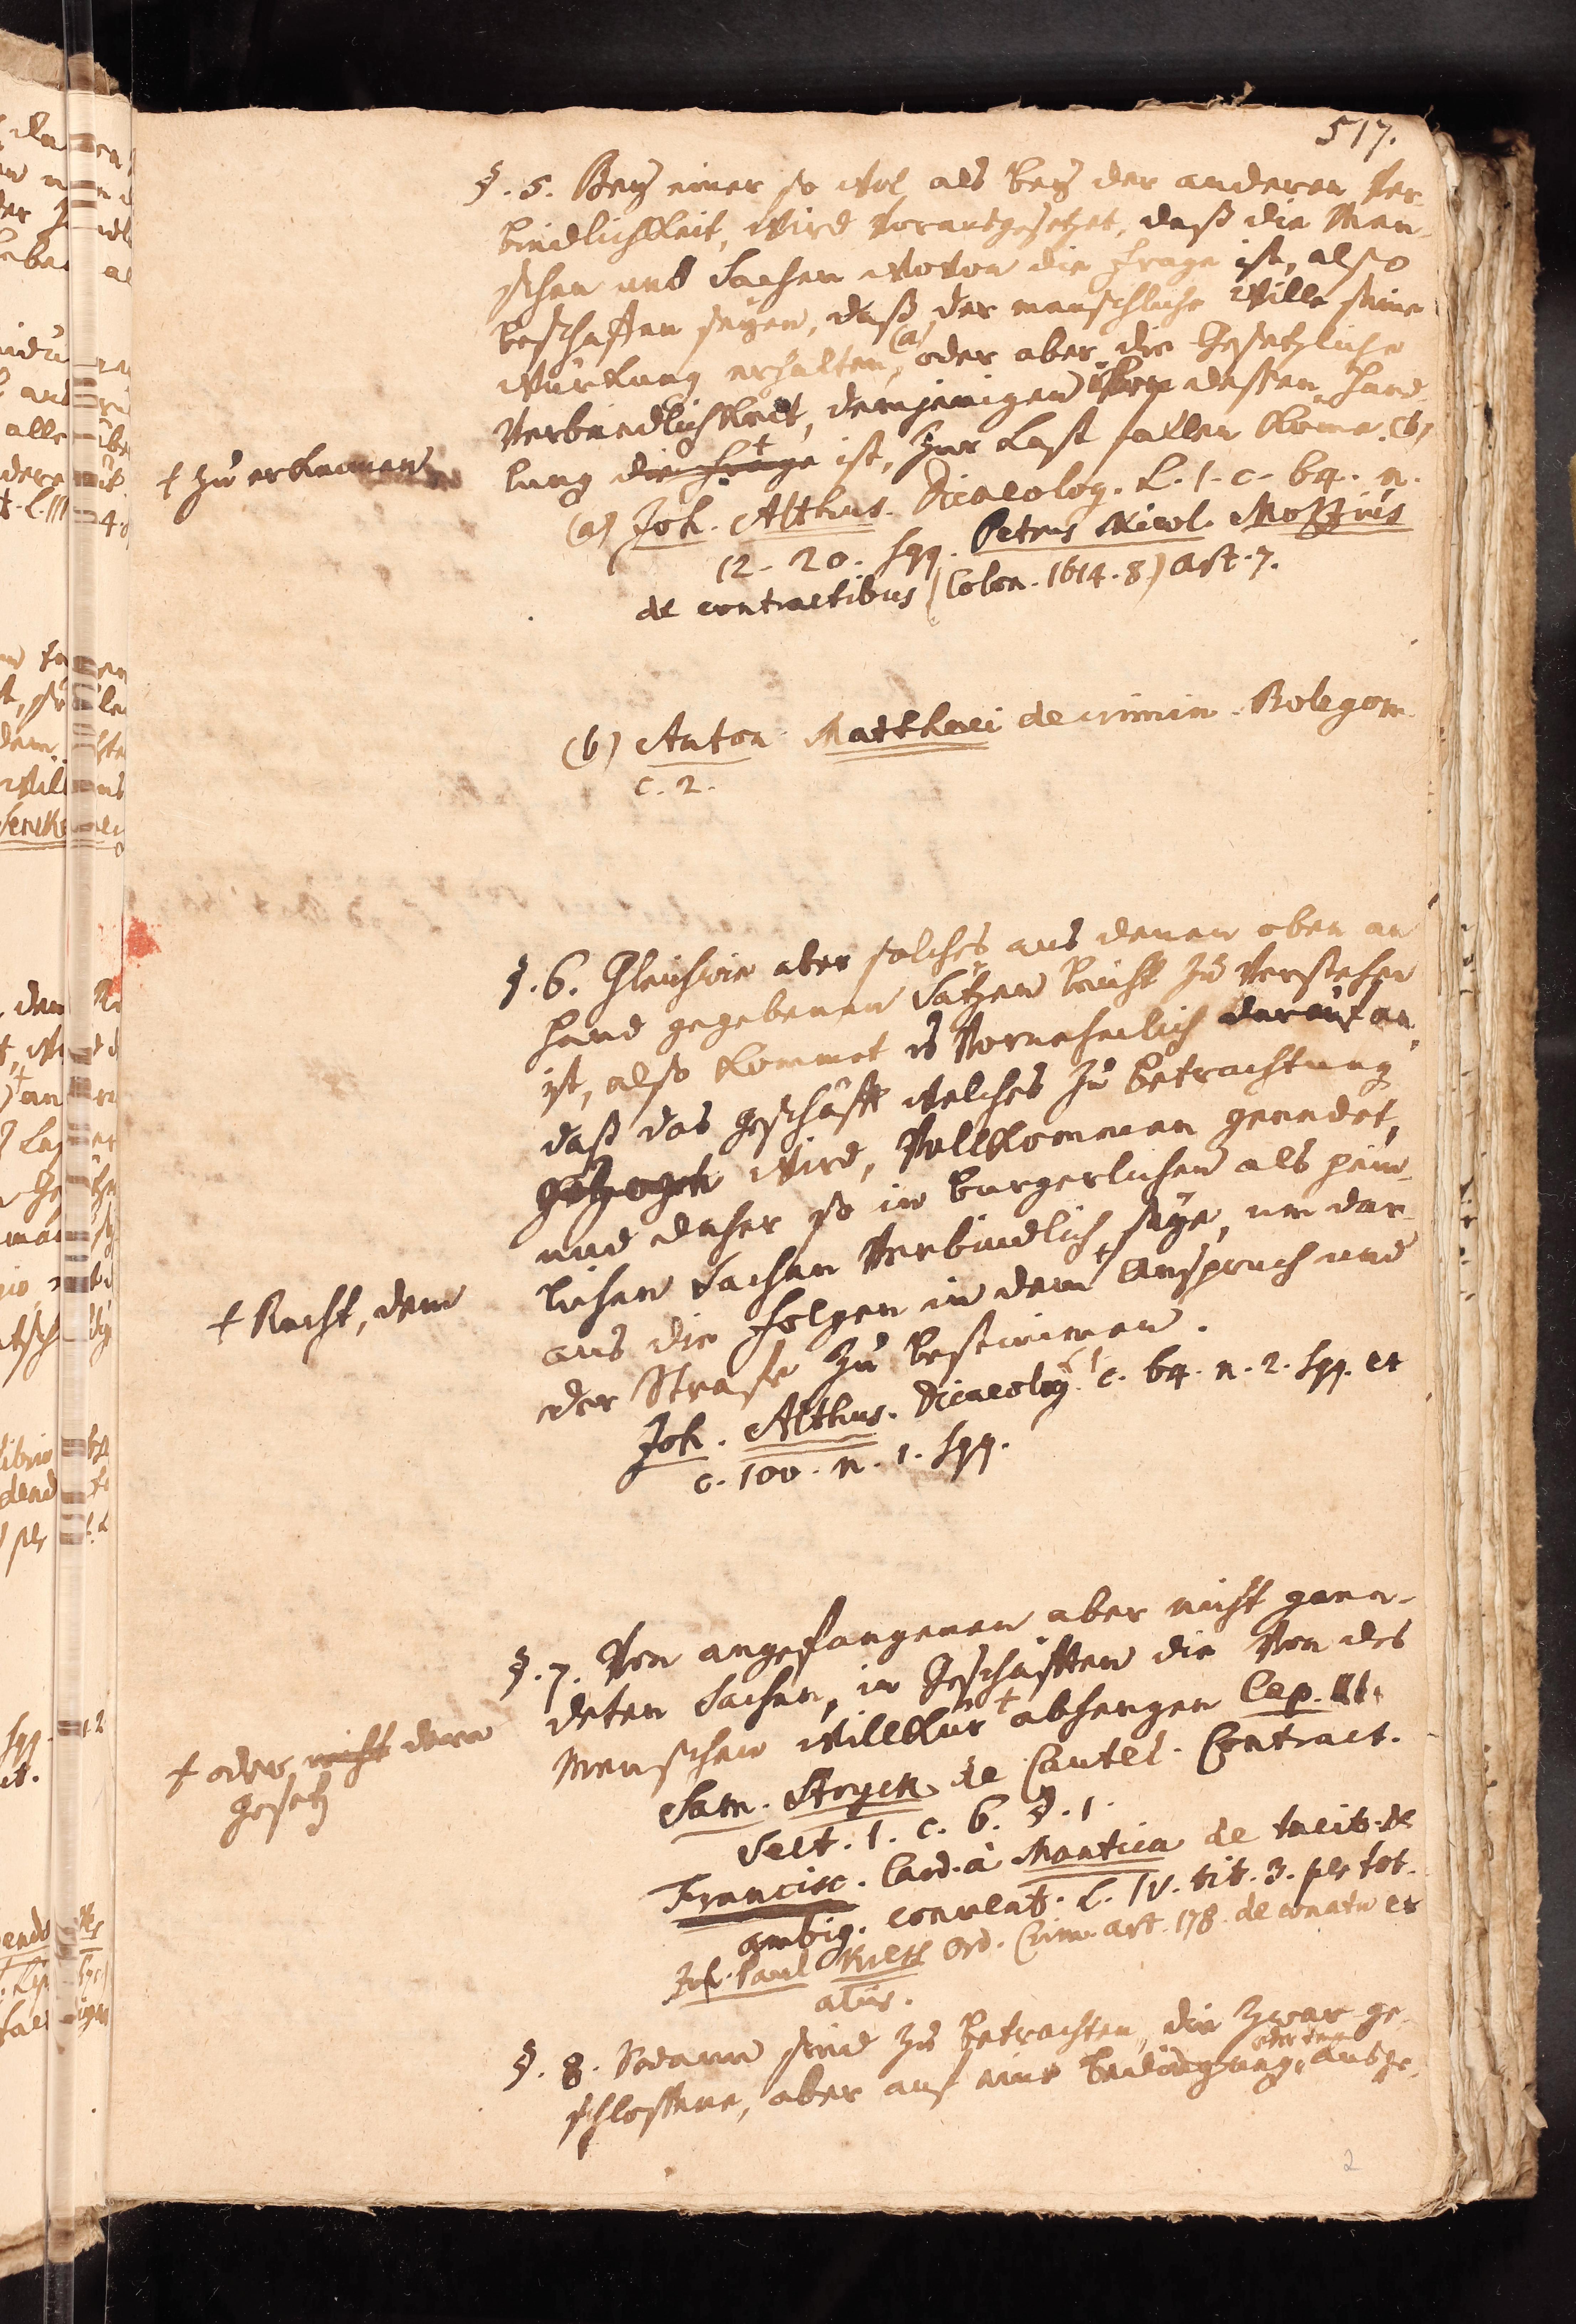 517.
§. 5. Bey einer so wol als bey der anderen Ver-
bindlichkeit, wird vorausgesetzet, daß die Men-
schen und Sachen wovon die Frage ist, also
beschaffen seyen, daß der menschliche Wille seine
würkung erhalten, (a) oder aber die Gesetzliche
Verbindlichkeit, demjenigen über dessen Hand-
lung die Frage † ist, zur Last fallen könne. (b)
† zu erkennen
(a) Joh. Althus. Dicaeolog. L. 1. c. 64. n.
12. 20. sqq. Petrus Nicol. Mozzius
de contractibus (Colon. 1614. 8) Art. 7.
(b) Anton Matthaei de crimin. Prolegom.
c. 2.
§. 6. Gleichwie aber solches aus denen oben an
hand gegebenen Sätzen leicht zu verstehen
ist, also kommet es vornehmlich darauf an,
daß das Geschäfft welches zu betrachtung
gezogen wird, vollkommen geendet,
und daher so in burgerlichen als pein-
lichen Sachen verbindlich seye, um dar-
aus die Folgen in dem † Anspruch und
† Recht, dem
der Strafe zu bestimmen.
Joh. Althus. Dicaeolog. L. 1. c. 64. n. 2. sqq. et
c. 100. n. 1. sqq.
§. 7. Von angefangenen aber nicht geen-
deten Sachen, in Geschäfften die von des
Menschen Willkür † abhangen Cap. III.
† oder nicht dem
gesetz
Sam. Stryck de Cautel. Contract.
Sect. 1. c. 6. §. 1.
Francisc. Card. à Mantica de tacit. et
ambig. convent. L. IV. tit. 3. per tot.
Joh. Paul Kress Ord. Crim. art. 178. de conatu et
§. 8. Sodann sind zu betrachten, die zwar ge-
schlossene, aber auf eine bedingung, oder den ausge-
2